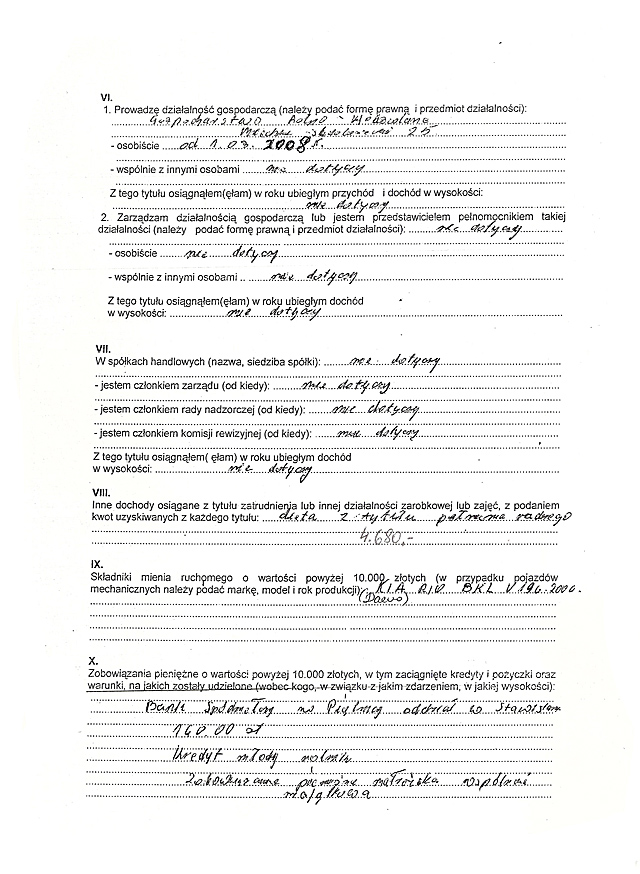 VI.
1. Prowadzę działalność gospodarczą (należy podać formę prawną i przedmiot działalności):
Gospodarstwo Rolno -
25
- osobiście od 1.03. 2008 r.
- wspólnie z innymi osobami nie dotyczy
Z tego tytułu osiągnąłem(ęłam) w roku ubiegłym przychód i dochód w wysokości:
nie dotyczy
2. Zarządzam działalnością gospodarczą lub jestem przedstawicielem pełnomocnikiem takiej
działalności (należy podać formę prawną i przedmiot działalności): nie dotyczy
- osobiście nie dotyczy
- wspólnie z innymi osobami nie dotyczy
Z tego tytułu osiągnąłem(ęłam) w roku ubiegłym dochód
w wysokości: nie dotyczy
VII.
W spółkach handlowych (nazwa, siedziba spółki): nie dotyczy
- jestem członkiem zarządu (od kiedy): nie dotyczy
- jestem członkiem rady nadzorczej (od kiedy): nie dotyczy
- jestem członkiem komisji rewizyjnej (od kiedy): nie dotyczy
Z tego tytułu osiągnąłem( ęłam) w roku ubiegłym dochód
w wysokości: nie dotyczy
VIII.
Inne dochody osiągane z tytułu zatrudnienia lub innej działalności zarobkowej lub zajęć, z podaniem
kwot uzyskiwanych z każdego tytułu: dieta z tytułu pełnienia radnego
4.680,-
IX.
Składniki mienia ruchomego o wartości powyżej 10.000 złotych (w przypadku pojazdów
mechanicznych należy podać markę, model i rok produkcji): KIA RIO BKL V196. 2006.
X.
Zobowiązania pieniężne o wartości powyżej 10.000 złotych, w tym zaciągnięte kredyty i pożyczki oraz
warunki, na jakich zostały udzielone (wobec kogo, w związku z jakim zdarzeniem, w jakiej wysokości):
Bank Spółdzielczy w Piątnicy oddział w
160.00 zł
Kredyt młody rolnik
małżeńska wspólność
majątkowa